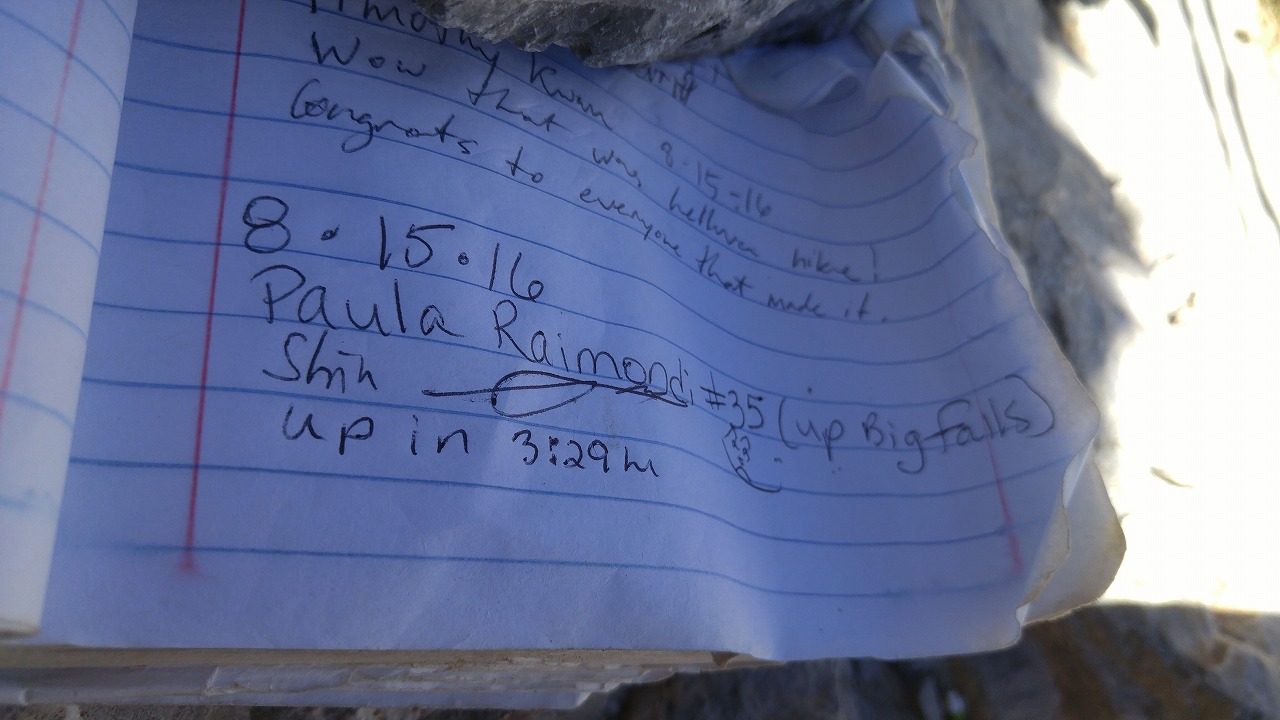 Timothy Kwan 8-15-16
Wow that was helluva hike!
Congrats to everyone that made it.
8.15.16
Paula Raimondi #35 (up Big falls)
Shih
up in 3:29m